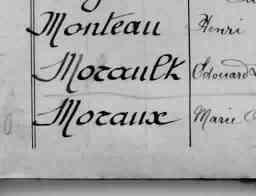 Monteau Henri
Morault Edouard
Moraux Marie